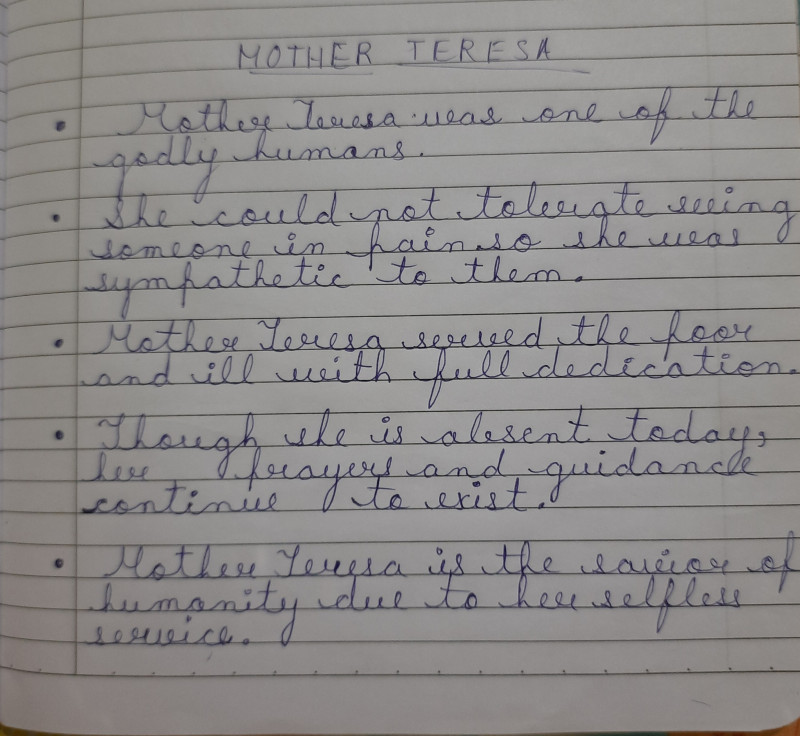 MOTHER TERESA
• Mother Teresa was one of the
godly humans.
• She could not tolerate seeing
someone in pain so she was
sympathetic to them.
• Mother Teresa served the poor
and ill with full dedication.
• Though she is absent today,
her prayers and guidance
continue to exist.
• Mother Teresa is the savior of
humanity due to her selfless
service.